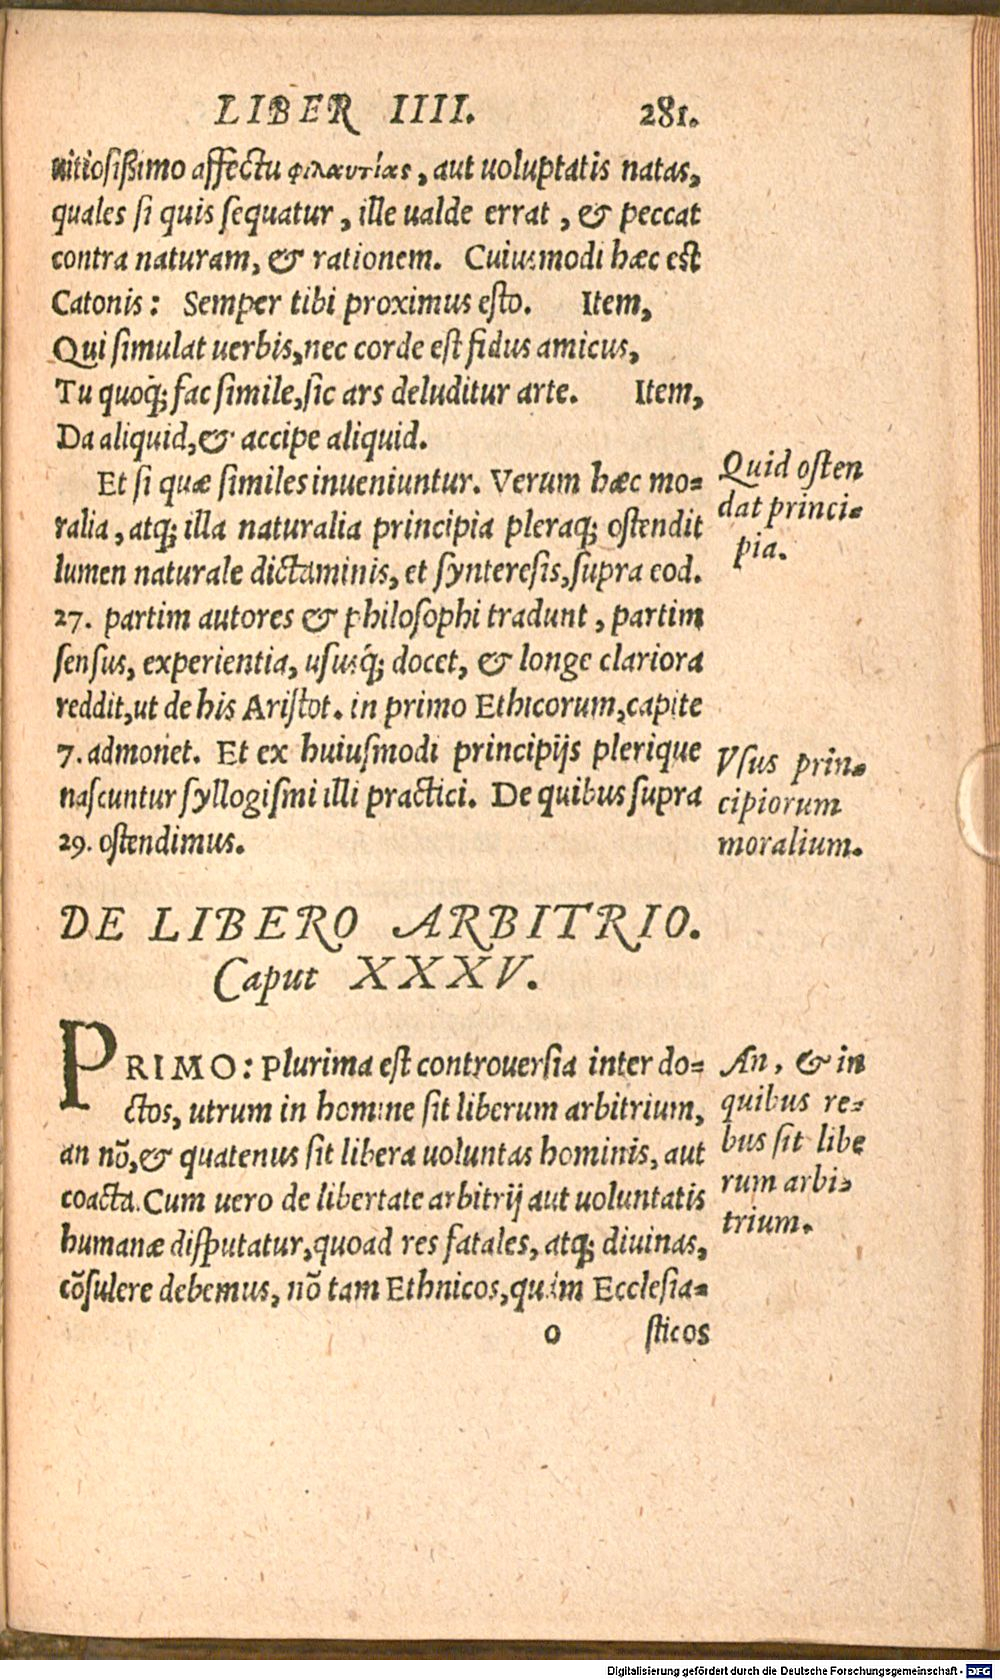 LIBER IIII. 281.
uitiosißimo affectu φιλαυτίας, aut uoluptatis natas,
quales si quis sequatur, ille ualde errat, & peccat
contra naturam, & rationem. Cuiusmodi hæc est
Catonis: Semper tibi proximus esto. Item,
Qui simulat uerbis, nec corde est fidus amicus,
Tu quoq; fac simile, sic ars deluditur arte. Item,
Da aliquid, & accipe aliquid.
Et si quæ similes inueniuntur. Verum hæc mo-
ralia, atq; illa naturalia principia pleraq; ostendit
lumen naturale dictaminis, et synteresis, supra eod.
27. partim autores & philosophi tradunt, partim
sensus, experientia, ususq́; docet, & longe clariora
reddit, ut de his Aristot. in primo Ethicorum, capite
7. admonet. Et ex huiusmodi principijs plerique
nascuntur syllogismi illi practici. De quibus supra
29. ostendimus.
Quid osten
dat princi-
pia.
Vsus prin-
cipiorum
moralium.
DE LIBERO ARBITRIO.
Caput XXXV.
PRIMO: plurima est controuersia inter do-
ctos, utrum in homine sit liberum arbitrium,
an nõ, & quatenus sit libera uoluntas hominis, aut
coacta. Cum uero de libertate arbitrij aut uoluntatis
humanæ disputatur, quoad res fatales, atq; diuinas,
cõsulere debemus, nõ tam Ethnicos, quàm Ecclesia-
An, & in
quibus re-
bus sit libe
rum arbi-
trium.
o sticos
Digitalisierung gefördert durch die Deutsche Forschungsgemeinschaft - DFG